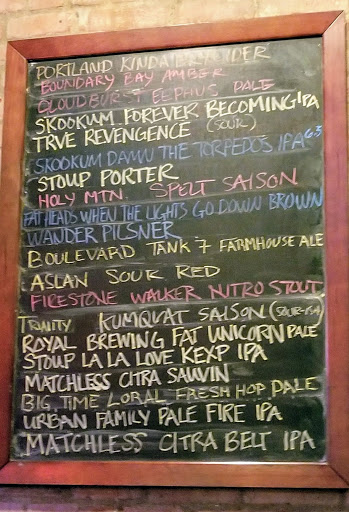 PORTLAND KINDA DRY CIDER
BOUNDARY BAY AMBER
CLOUDBURST EEPHUS PALE
SKOOKUM FOREVER BECOMING IPA
TRVE REVENGENCE (SOUR)
SKOOKUM DAMN THE TORPEDOS IPA 6.3
STOUP PORTER
HOLY MTN. SPELT SAISON
FAT HEADS WHEN THE LIGHTS GO DOWN BROWN
WANDER PILSNER
BOULEVARD TANK 7 FARMHOUSE ALE
ASLAN SOUR RED
FIRESTONE WALKER NITRO STOUT
TRINITY KUMQUAT SAISON (SOUR-ISH)
ROYAL BREWING FAT UNICORN PALE
STOUP LA LA LOVE KEXP IPA
MATCHLESS CITRA SAUVIN
BIG TIME LORAL FRESH HOP PALE
URBAN FAMILY PALE FIRE IPA
MATCHLESS CITRA BELT IPA